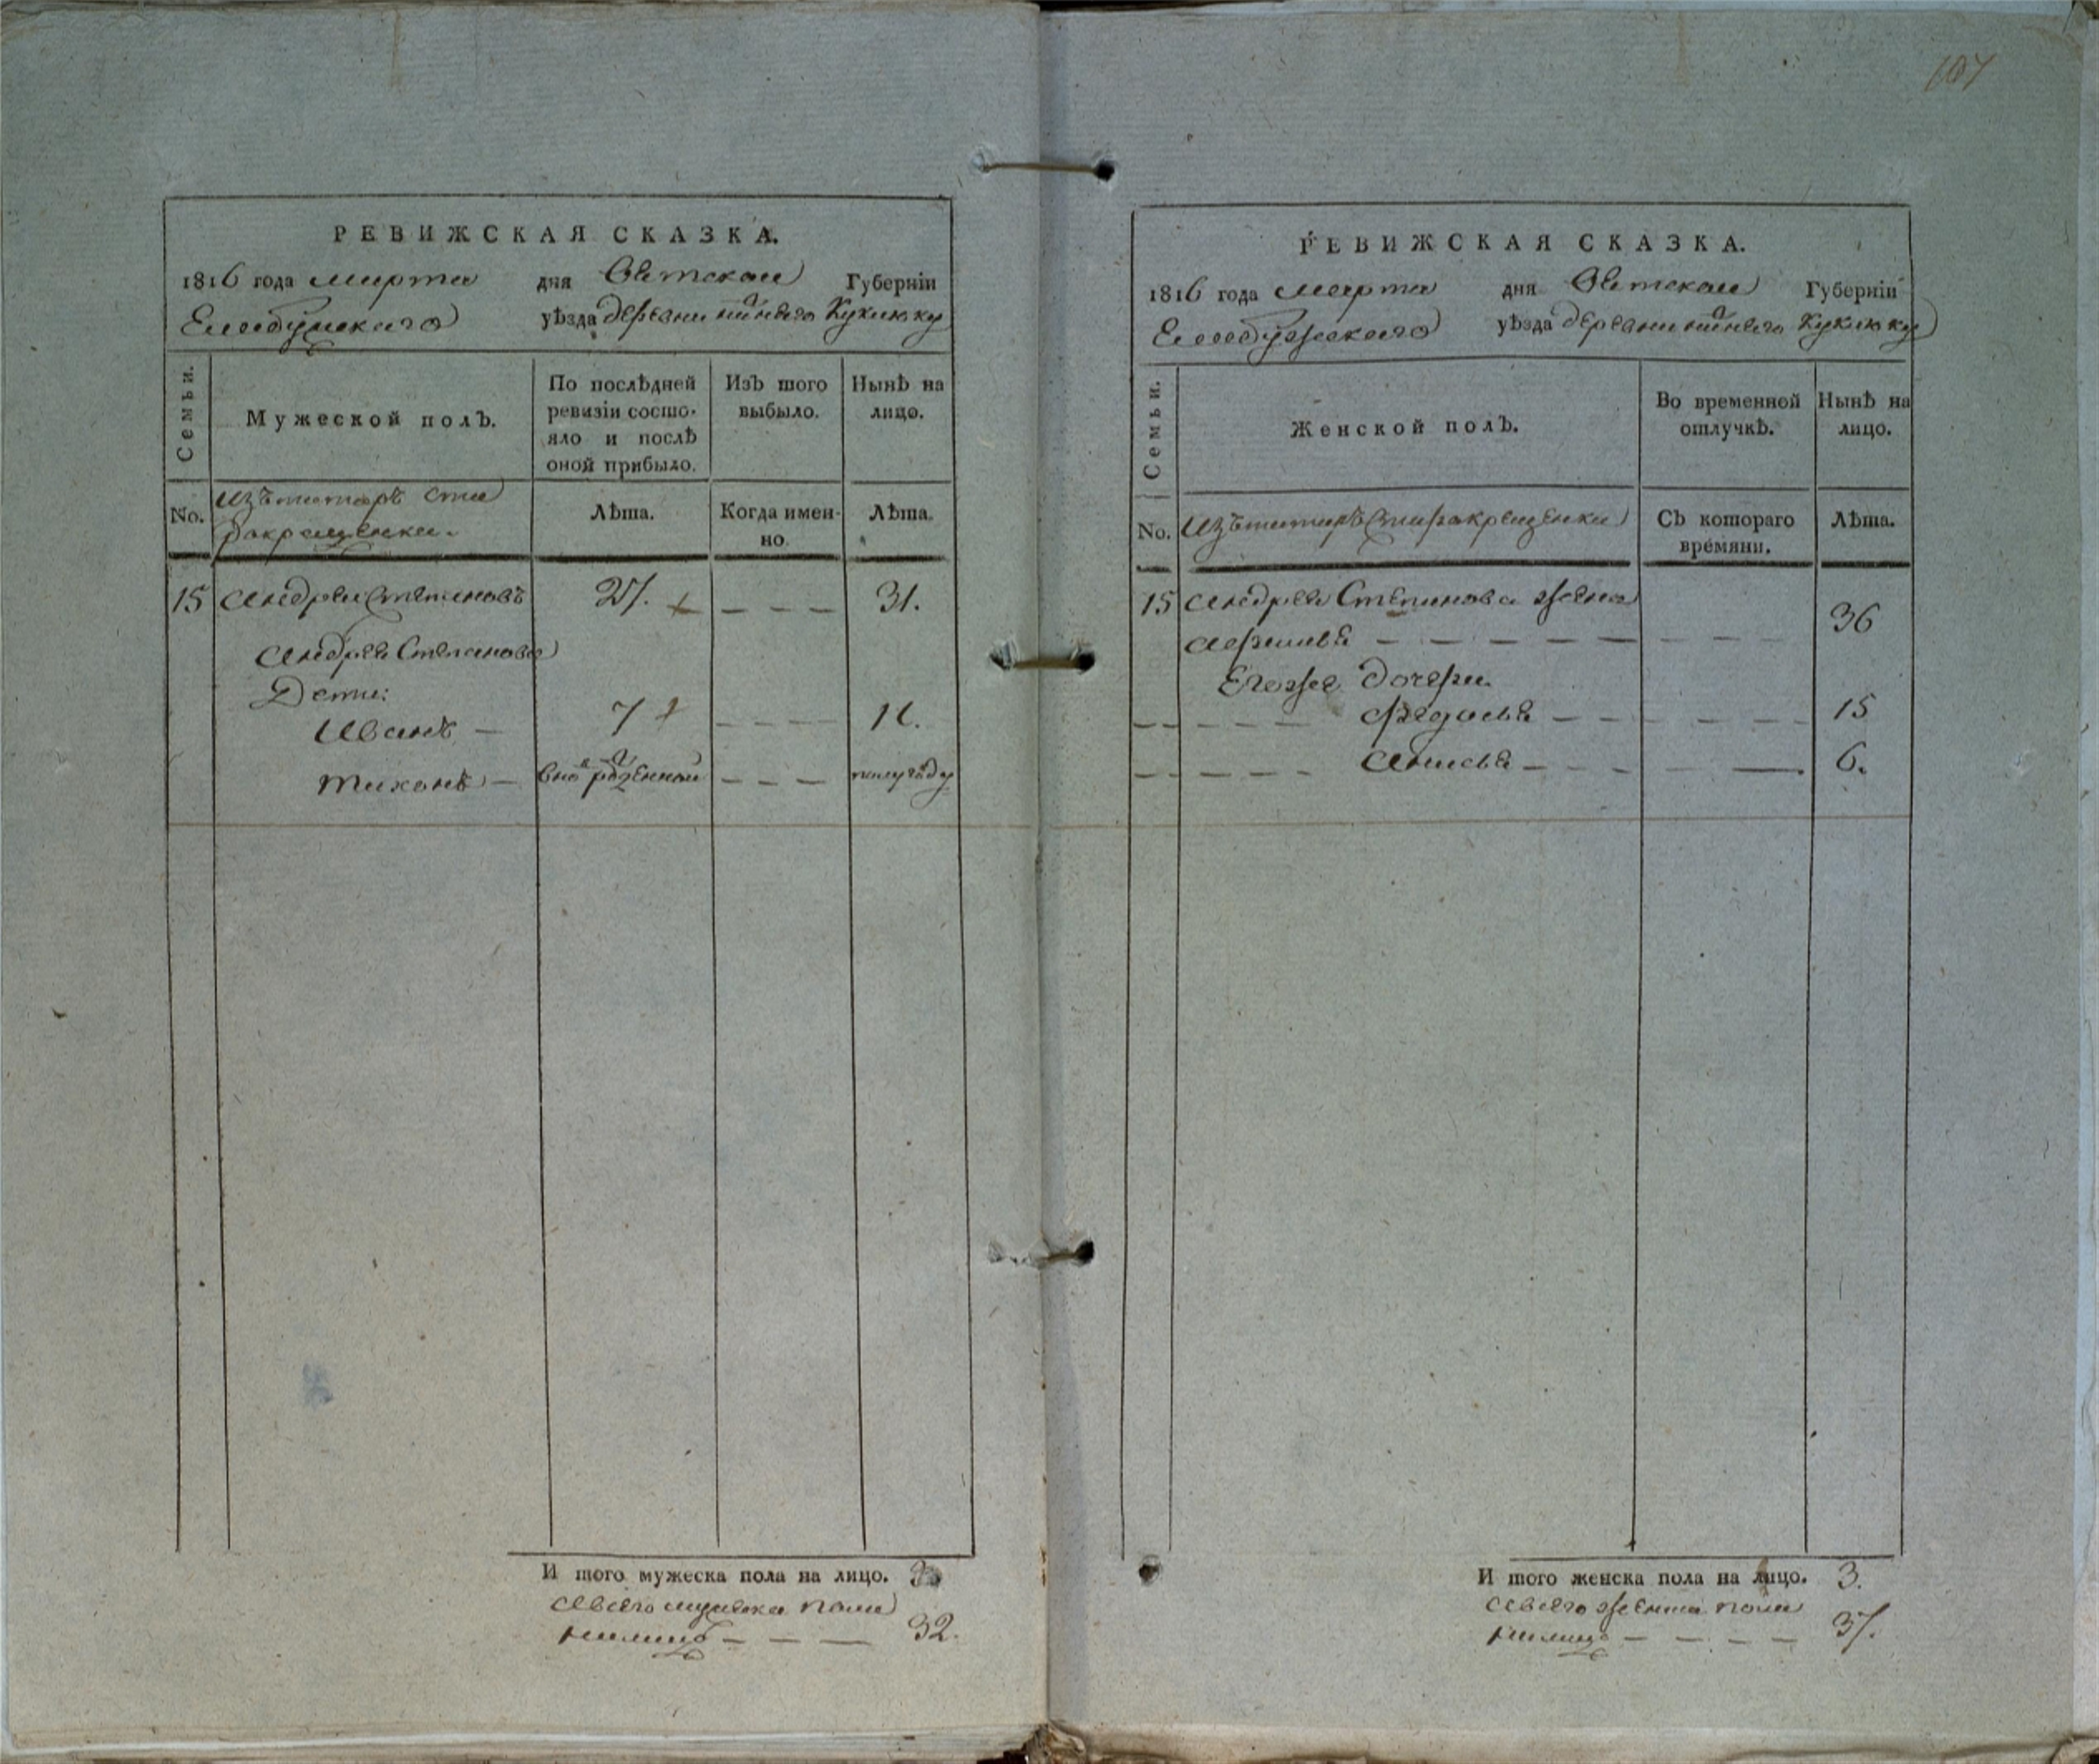 107
РЕВИЖСКАЯ СКАЗКА.
1816 года марта дня Вятской Губерніи
Елабужскаго уѣзда деревни нижняго Куклюку
Семьи.
Мужеской полъ.
По послѣдней
ревизіи состо-
яло и послѣ
оной прибыло.
Изъ того
выбыло.
Нынѣ на
лицо.
No.
Изъ татаръ ста
рокрещенки.
Лѣта.
Когда имен-
но
Лѣта.
15 Андрей Степановъ 27. 31.
Андрея Степанова
Дети:
Иванъ 7 11.
Тихонъ вно рожденной полугоду
И того мужеска пола на лицо. 3
Авсего мужеска пола
налицо 32.
РЕВИЖСКАЯ СКАЗКА.
1816 года марта дня Вятской Губерніи
Елабужскаго уѣзда деревни нижняго Куклюку
Семьи.
Женской полъ.
Во временной
отлучкѣ.
Нынѣ на
лицо.
No.
Изъ татаръ старокрещенки
Съ котораго
времяни.
Лѣта.
15 Андрея Степанова жена
36
Егоже дочери
Федосья 15
Анисья 6.
И того женска пола на лицо. 3.
Авсего женска пола
налицо 37.